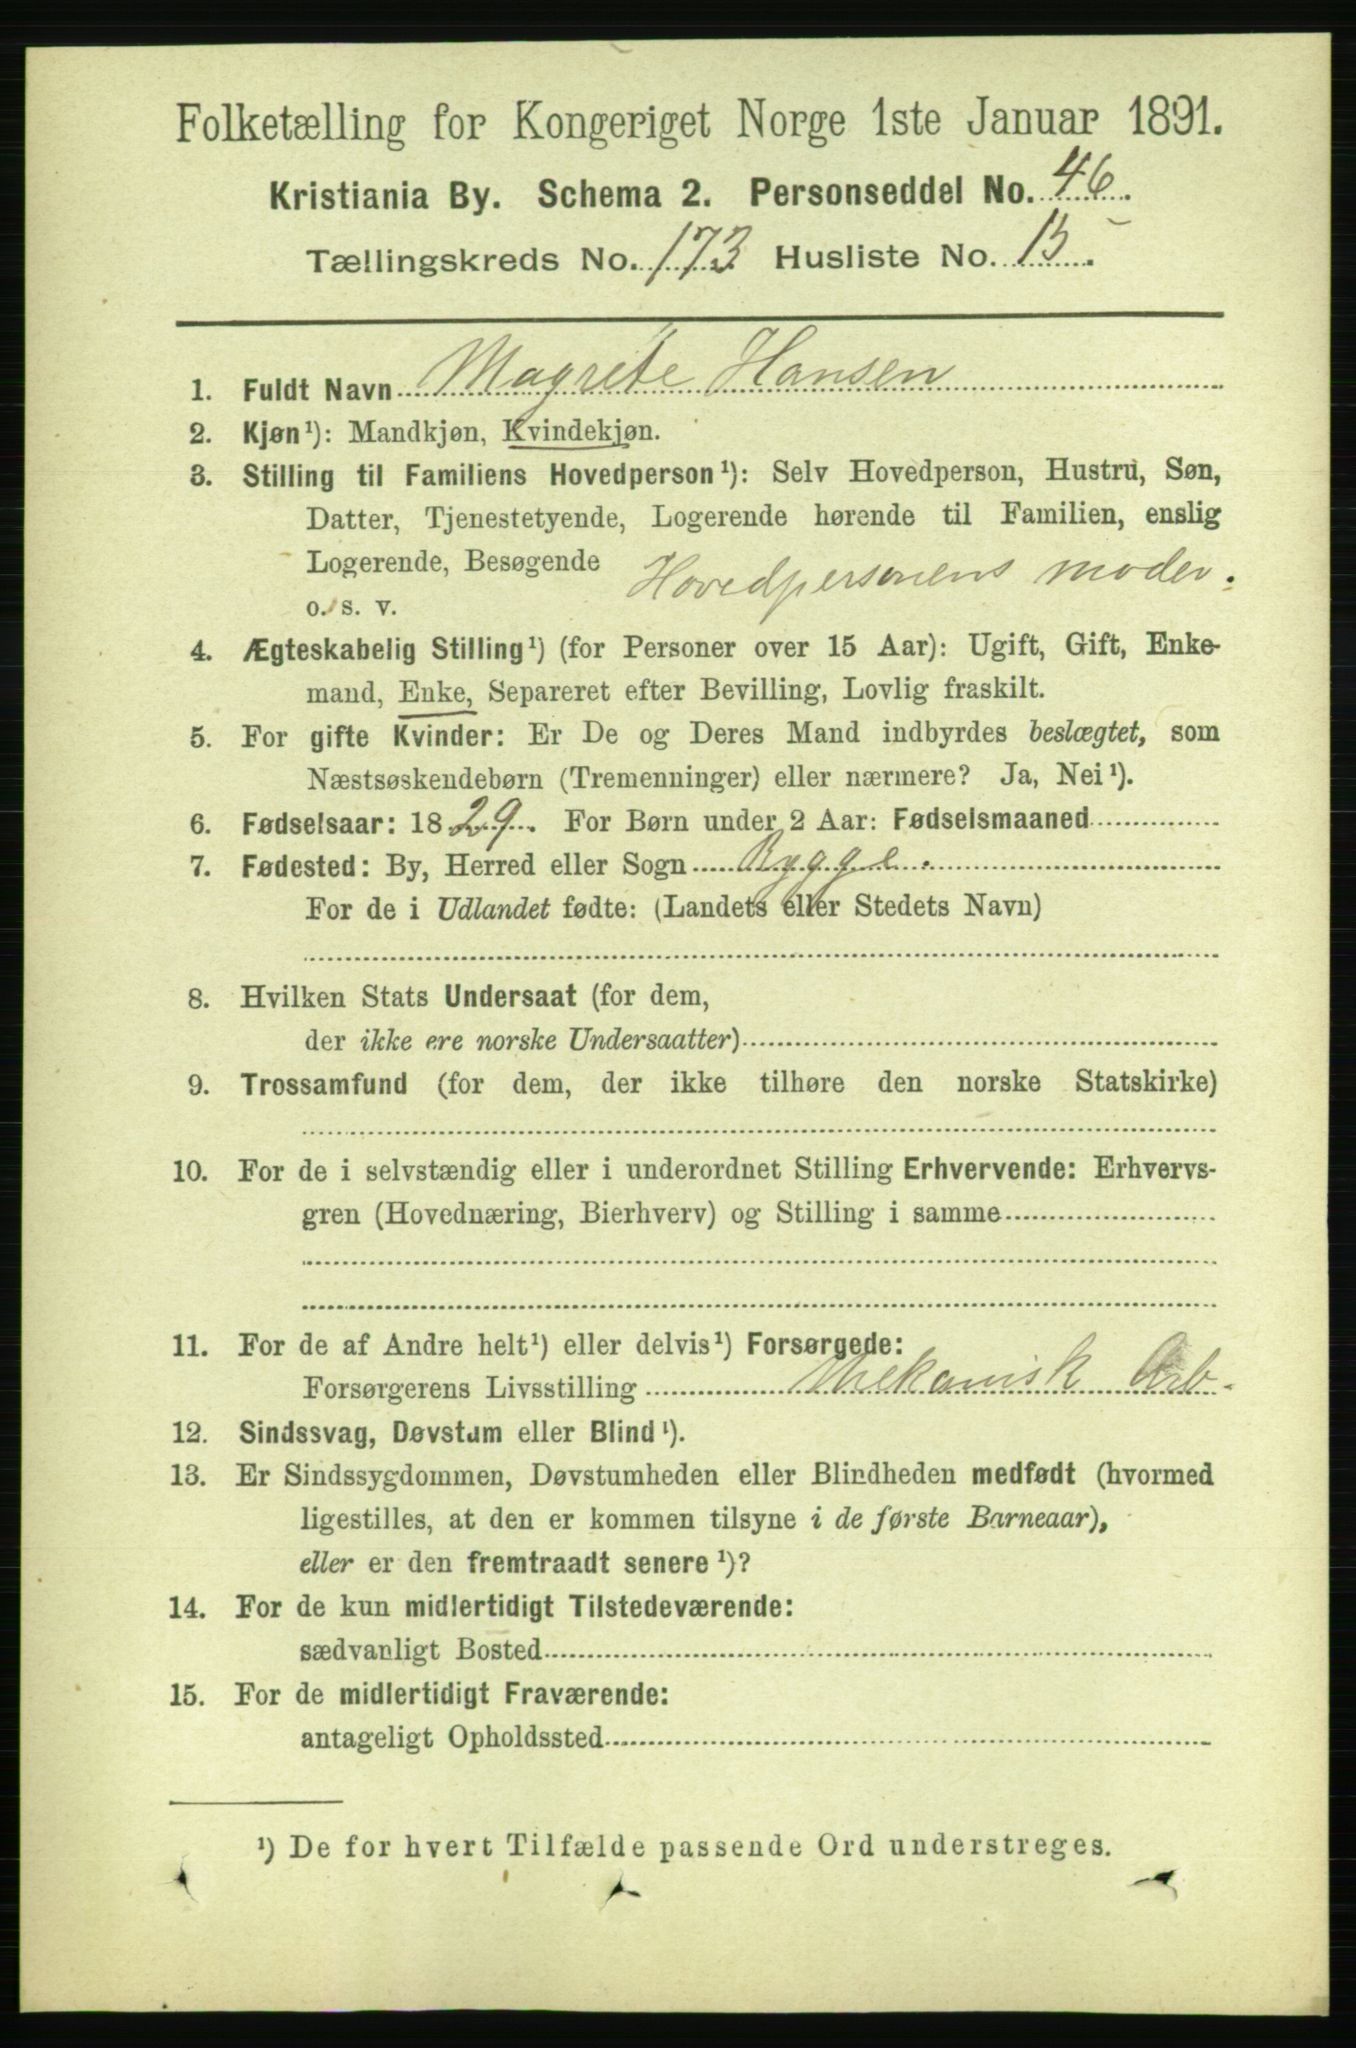 Folketælling for Kongeriget Norge 1ste Januar 1891.
Kristiania By. Schema 2. Personseddel No. 46.
Tællingskreds No. 173 Husliste No. 15.
1. Fuldt Navn Magrete Hansen
2. Kjøn¹): Mandkjøn, Kvindekjøn.
3. Stilling til Familiens Hovedperson¹): Selv Hovedperson, Hustru, Søn,
Datter, Tjenestetyende, Logerende hørende til Familien, enslig
Logerende, Besøgende Hovedpersonens moder.
o. s. v.
4. Ægteskabelig Stilling¹) (for Personer over 15 Aar): Ugift, Gift, Enke-
mand, Enke, Separeret efter Bevilling, Lovlig fraskilt.
5. For gifte Kvinder: Er De og Deres Mand indbyrdes beslægtet, som
Næstsøskendebørn (Tremenninger) eller nærmere? Ja, Nei¹).
6. Fødselsaar: 1829. For Børn under 2 Aar: Fødselsmaaned
7. Fødested: By, Herred eller Sogn Rygge.
For de i Udlandet fødte: (Landets eller Stedets Navn)
8. Hvilken Stats Undersaat (for dem,
der ikke ere norske Undersaatter)
9. Trossamfund (for dem, der ikke tilhøre den norske Statskirke)
10. For de i selvstændig eller i underordnet Stilling Erhvervende: Erhvervs-
gren (Hovednæring, Bierhverv) og Stilling i samme
11. For de af Andre helt¹) eller delvis¹) Forsørgede:
Forsørgerens Livsstilling Mekanisk Arb.
12. Sindssvag, Døvstum eller Blind¹).
13. Er Sindssygdommen, Døvstumheden eller Blindheden medfødt (hvormed
ligestilles, at den er kommen tilsyne i de første Barneaar),
eller er den fremtraadt senere¹)?
14. For de kun midlertidigt Tilstedeværende:
sædvanligt Bosted
15. For de midlertidigt Fraværende:
antageligt Opholdssted
¹) De for hvert Tilfælde passende Ord understreges.